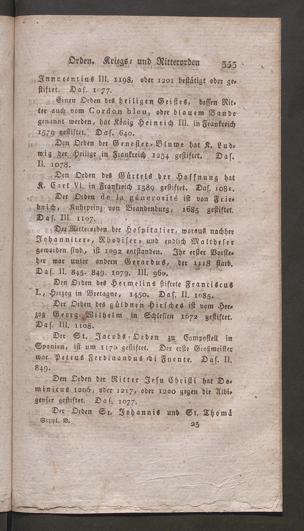 Orden, Kriegs- und Ritterorden 353
Innocentius III. 1198. oder 1201 bestätigt oder ge-
stiftet. Das. 1077.
Einen Orden des heiligen Geistes, dessen Rit-
ter auch vom Cordon bleu, oder blauem Bande
genannt werden, hat König Heinrich III. in Frankreich
1579 gestiftet. Das. 640.
Den Orden der Genester-Blume hat K. Lud-
wig der Heilige in Frankreich 1234 gestiftet. Das.
II. 1078.
Den Orden des Gürtels der Hoffnung hat
K. Carl VI. in Frankreich 1389 gestiftet. Das. 1081.
Der Orden de la génerosité ist von Frie-
drich, Kuhrprinz von Brandenburg, 1685 gestiftet.
Das. III. 1107.
Der Ritterorden der Hospitalier, woraus nachher
Johanniter-, Rhodiser- und endlich Maltheser
geworden sind, ist 1092 entstanden. Ihr erster Vorste-
her war unter andern Gerardus, der 1118 starb.
Das. II. 845. 849. 1079. III. 960.
Den Orden des Hermelins stiftete Franciscus
I., Herzog in Bretagne, 1450. Das. II. 1085.
Der Orden des güldnen Hirsches ist vom Her-
zog Georg Wilhelm in Schlesien 1672 gestiftet.
Das. III. 1108.
Der St. Jacobs-Orden zu Compostell in
Spanien, ist um 1170 gestiftet. Der erste Großmeister
war Petrus Ferdinandus di Fuente. Das. II.
849.
Den Orden der Ritter Jesu Christi hat Do-
minicus 1206, oder 1217, oder 1220 gegen die Albi-
genser gestiftet. Das. 1077.
Der Orden St. Johannis und St. Thomä
Suppl. B. 25